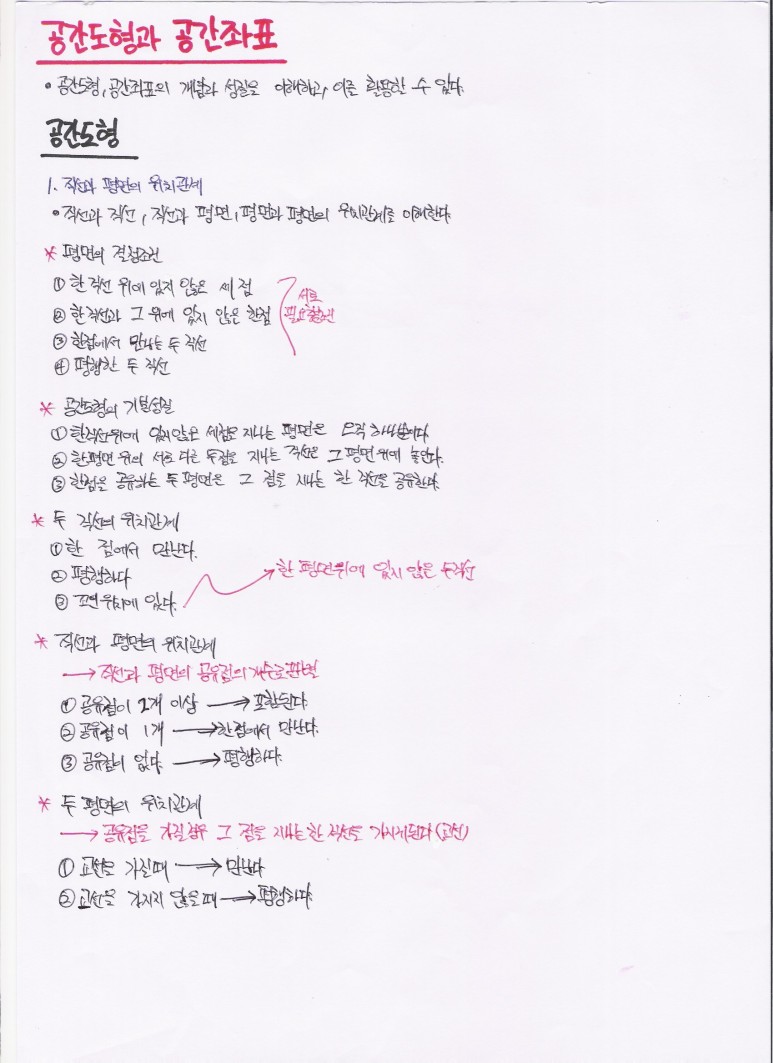 공간도형과 공간좌표
• 공간도형, 공간좌표의 개념과 성질을 이해하고, 이를 활용할 수 있다.
공간도형
1. 직선과 평면의 위치관계
• 직선과 직선, 직선과 평면, 평면과 평면의 위치관계를 이해한다.
* 평면의 결정조건
① 한 직선 위에 있지 않은 세 점
② 한 직선과 그 위에 있지 않은 한점
서로
필요충분조건
③ 한점에서 만나는 두 직선
④ 평행한 두 직선
* 공간도형의 기본성질
① 한직선위에 있지않은 세점을 지나는 평면은 오직 하나뿐이다
② 한평면 위의 서로 다른 두점을 지나는 직선은 그 평면 위에 놓인다.
③ 한점을 공유하는 두 평면은 그 점을 지나는 한 직선을 공유한다.
* 두 직선의 위치관계
① 한 점에서 만난다.
② 평행하다 → 한 평면위에 있지 않은 두직선
③ 꼬인 위치에 있다.
* 직선과 평면의 위치관계
→ 직선과 평면의 공유점의 개수로 판별
① 공유점이 2개 이상 → 포함된다
② 공유점이 1개 → 한점에서 만난다.
③ 공유점이 없다. → 평행하다.
* 두 평면의 위치관계
→ 공유점을 가질경우 그 점을 지나는 한 직선을 가지게된다 (교선)
① 교선을 가질때 → 만난다
② 교선을 가지지 않을때 → 평행하다.